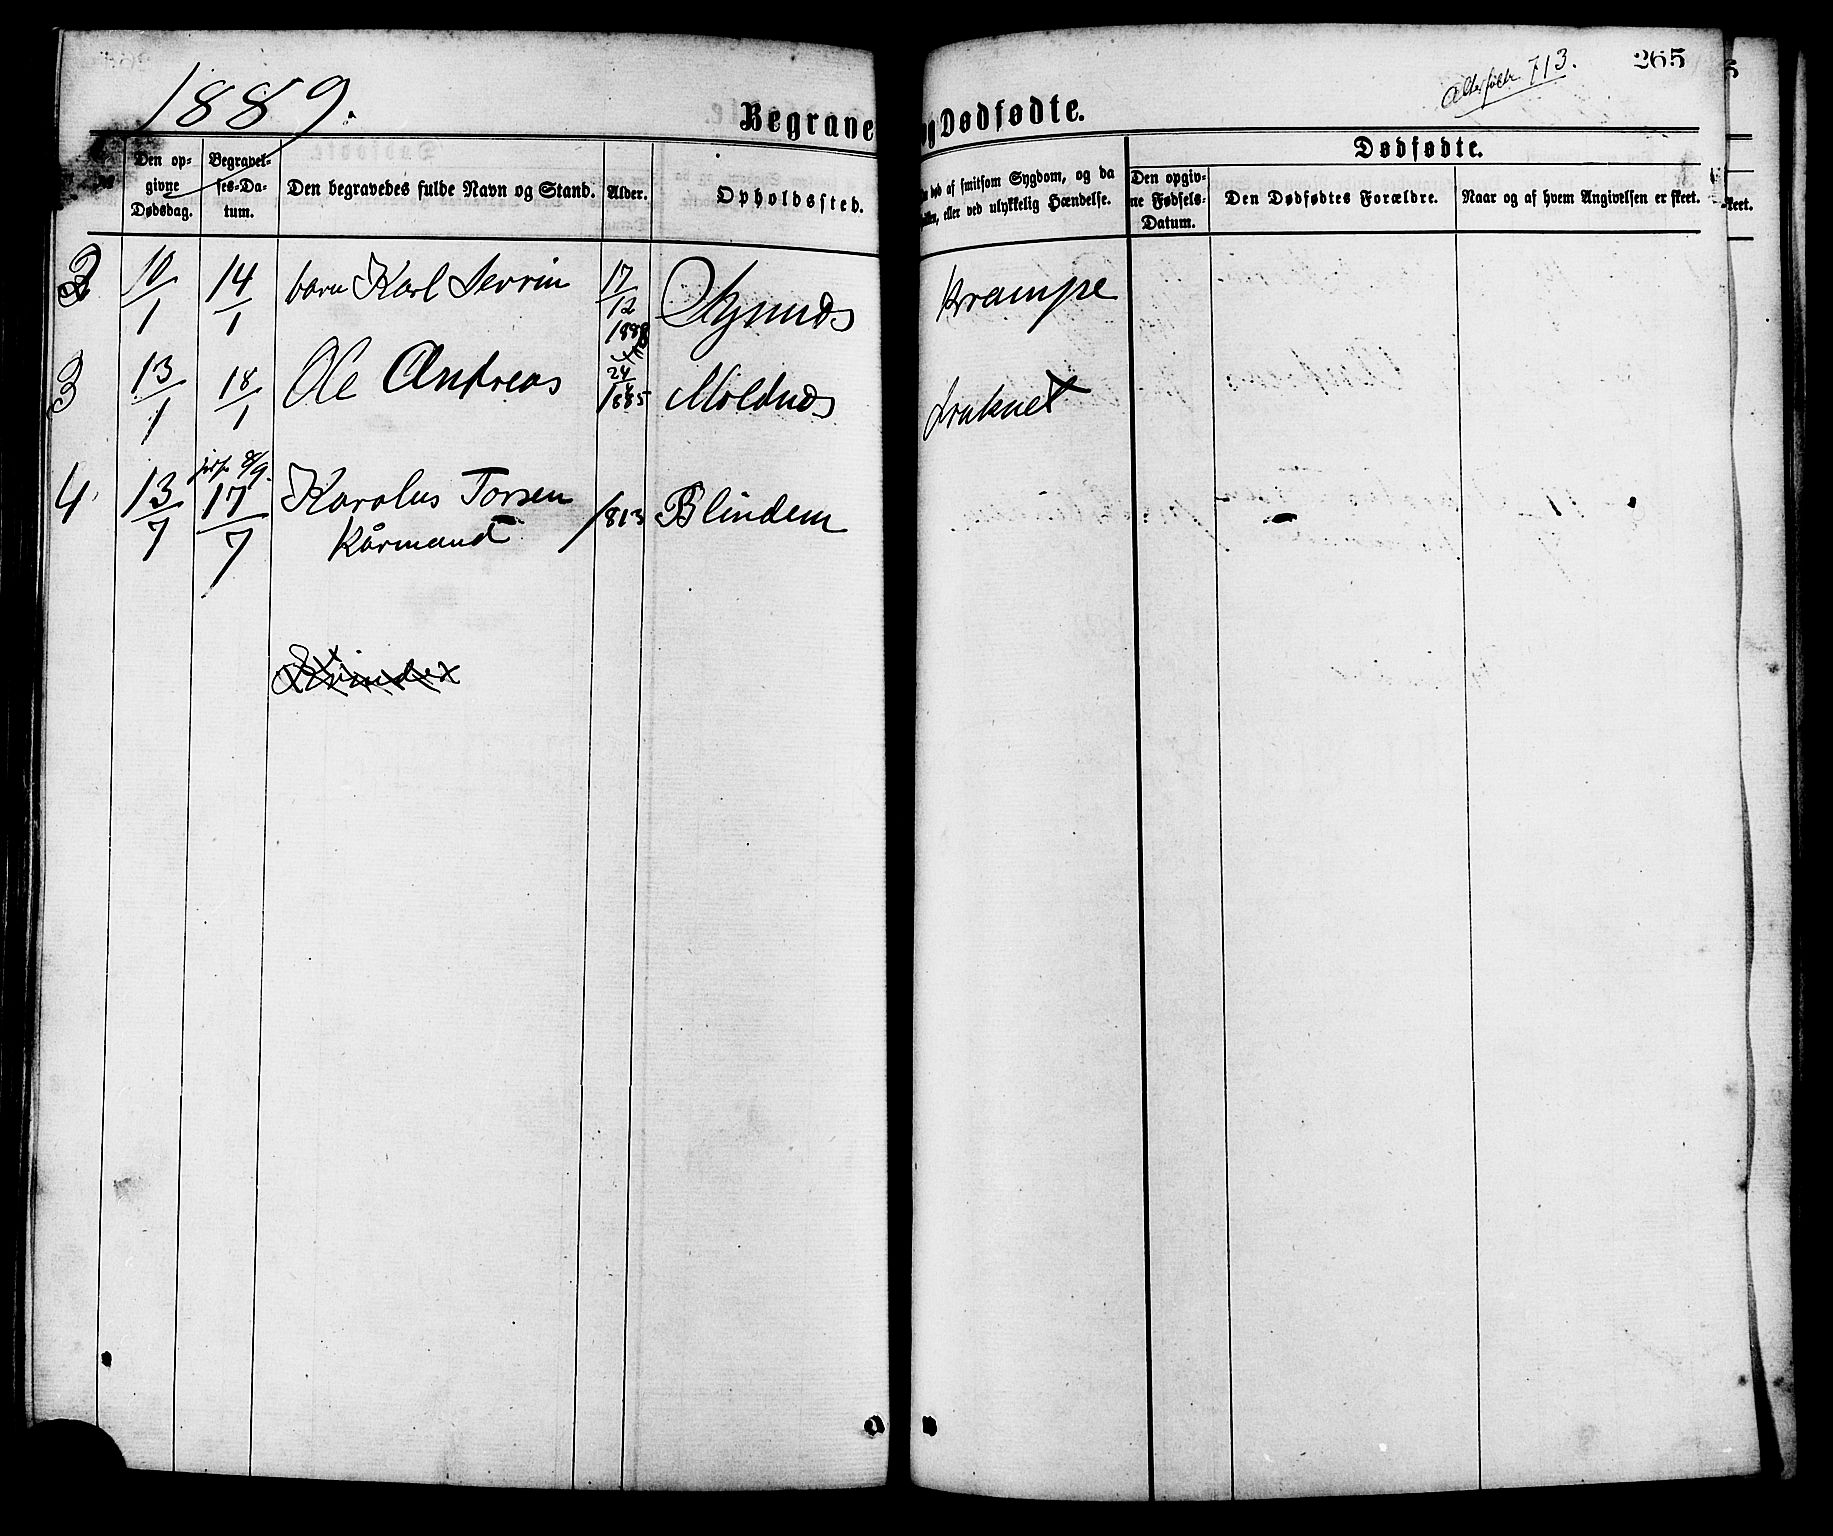 1889.
Begrave
og Dødfødte.
713.
265
Den op-
givne
Dødsdag.
Begravel-
ses-Da-
tum.
Den begravedes fulde Navn og Stand.
Alder.
Opholdssted.
død af smitsom Sygdom, og da
eller ved ulykkelig Hændelse.
Dødfødte.
Den opgiv-
ne Fødsels-
Datum.
Den Dødfødtes Forældre.
Naar og af hvem Angivelsen er skeet.
skeet.
2 10/1 14/1 barn Karl Sevrin 17/12 1888 krampe
3 13/1 18/1 Ole Andreas 24 1885 Moldnæs druknet
8/9.
4 13/7 17/7 Karolus Torsen 1813 Blindem
kårmand